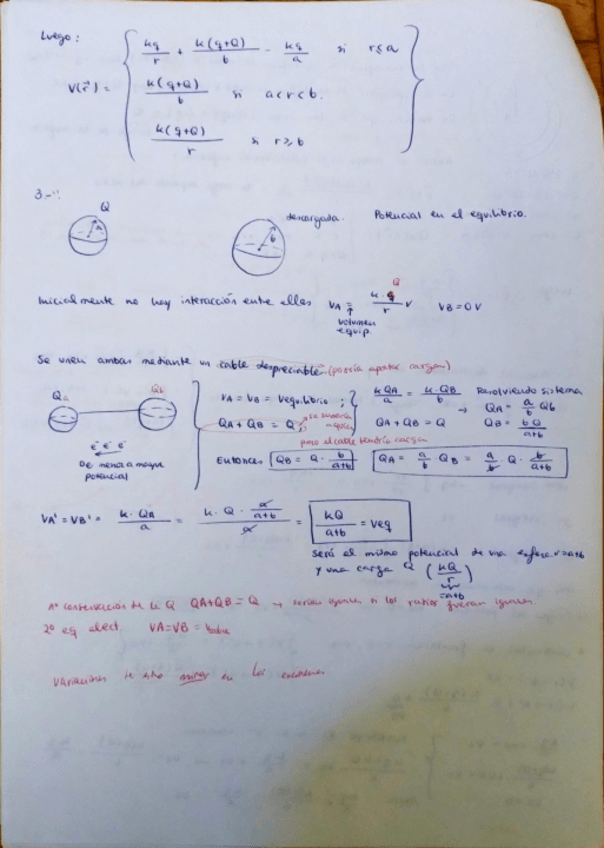 Luego:
V(r⃗) = { kq/r + k(q+Q)/b - kq/a si r≤a
k(q+Q)/b si a<r<b.
k(q+Q)/r si r≥b }
3.-
Q
a
b
descargada.
Potencial en el equilibrio.
Inicialmente no hay interacción entre ellas VA = k·Q/r V VB = 0V
volumen equip.
Se unen ambas mediante un cable despreciable (podría aportar cargas)
Qa Qb
e⁻ e⁻ e⁻
De menor a mayor potencial
VA = VB = Vequilibrio ;
QA + QB = Q ;
pero el cable tendría carga
kQA/a = k·QB/b
QA + QB = Q
→
Resolviendo sistema
QA = a/b Qb
QB = bQ/a+b
Entonces QB = Q · b/a+b
QA = a/b QB = a/b Q · b/a+b
VA' = VB' = k·QA/a = k·Q· a/a+b / a = kQ/a+b = Veq
será el mismo potencial de una esfera r=a+b
y una carga Q (kQ/r)
=a+b
1º conservación de la Q QA+QB = Q → serían iguales si los radios fueran iguales.
2º eq elect. VA=VB =
Variaciones de esto en los exámenes